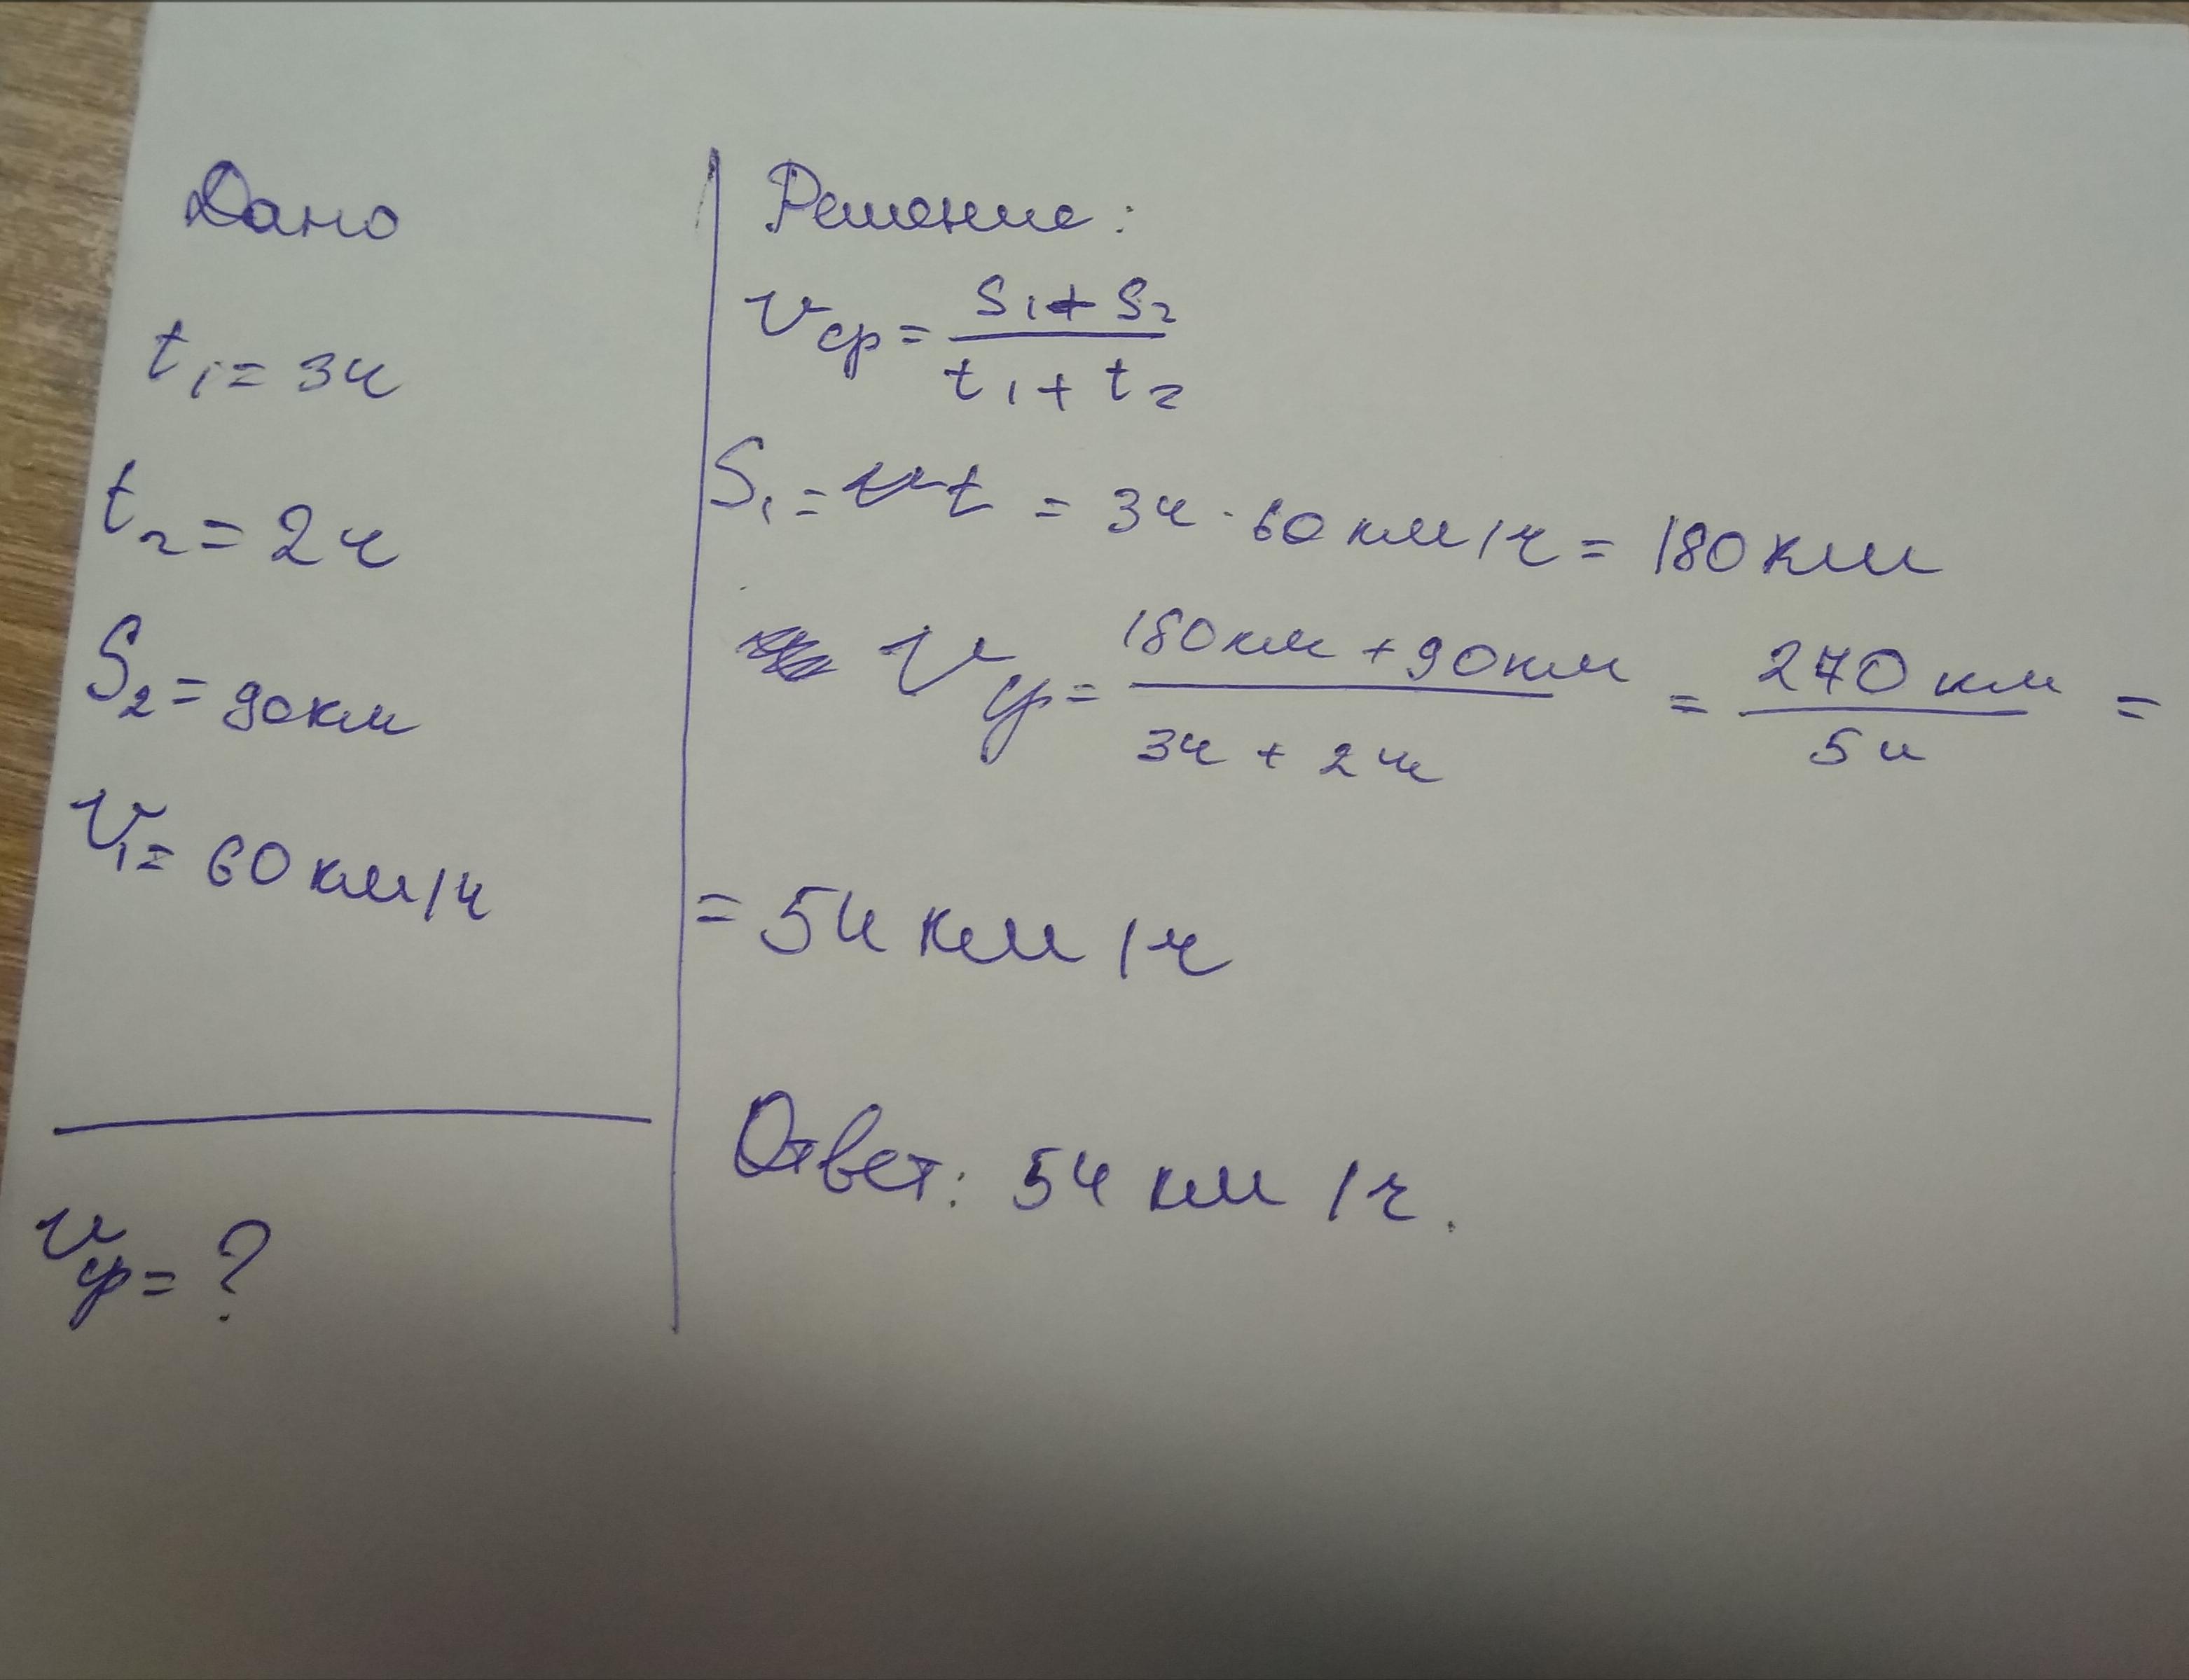 Дано
t₁ = 3ч
t₂ = 2ч
S₂ = 90км
v₁ = 60 км/ч
vср = ?
Решение:
vср = (S₁ + S₂) / (t₁ + t₂)
S₁ = vt = 3ч · 60 км/ч = 180 км
vср = (180км + 90км) / (3ч + 2ч) = 270 км / 5ч =
= 54 км/ч
Ответ: 54 км/ч.